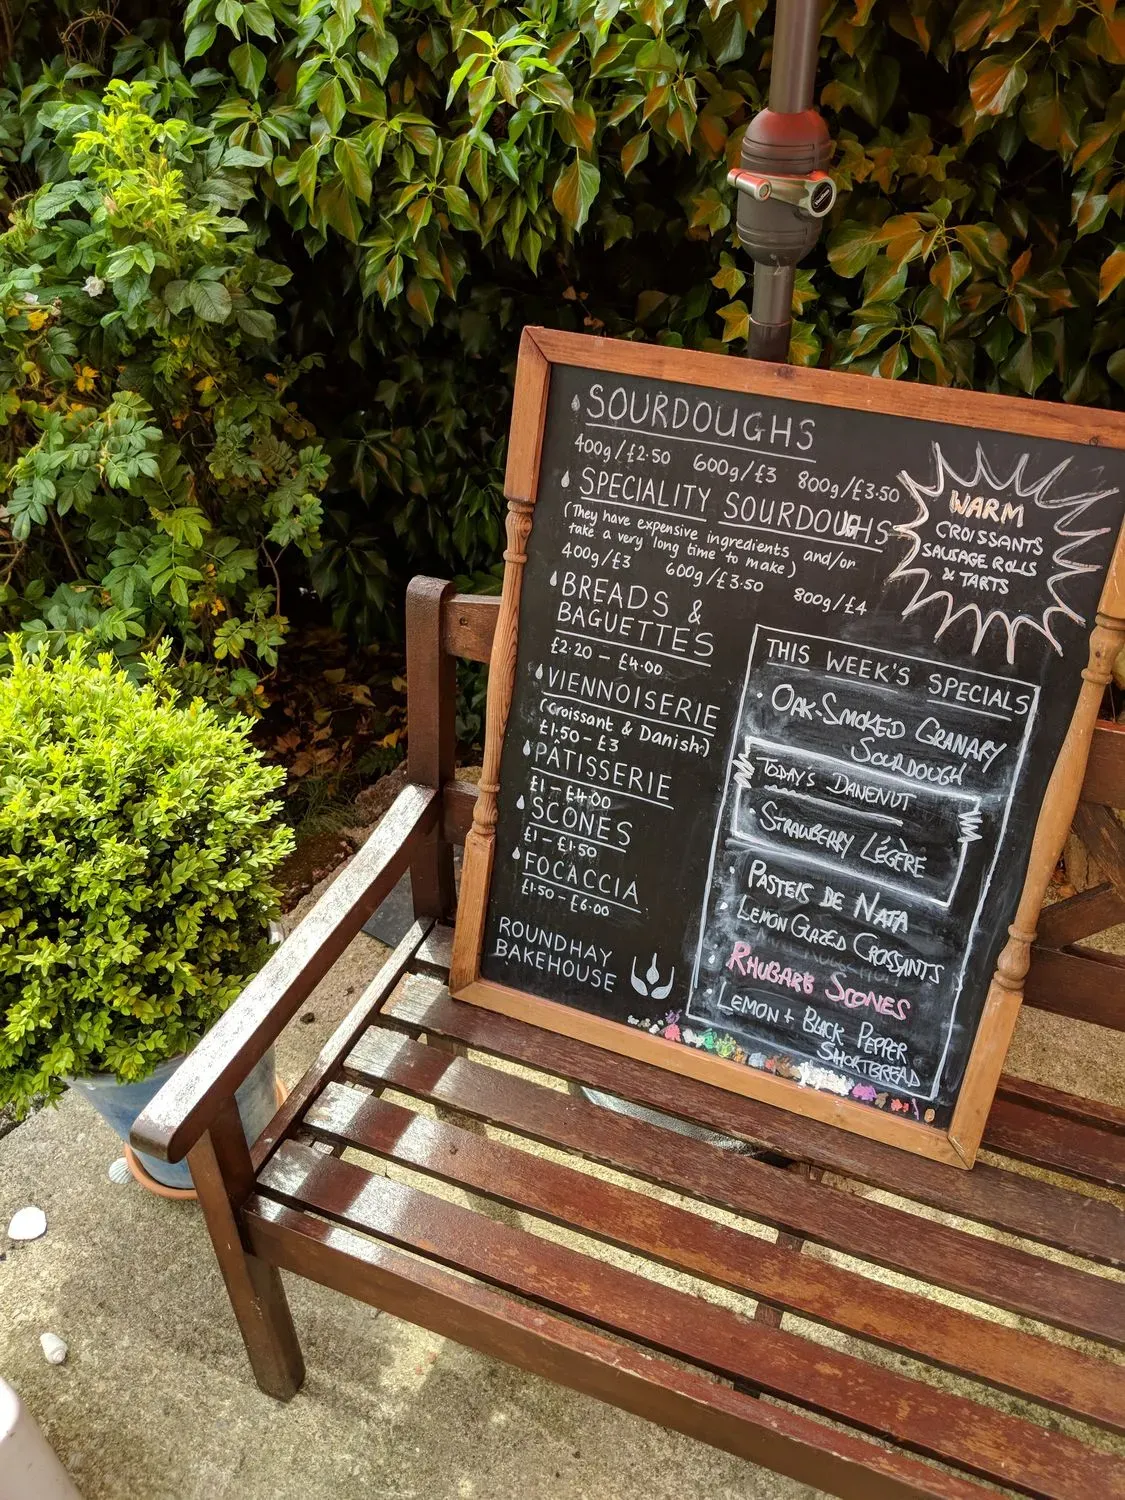 SOURDOUGHS
400g/£2·50 600g/£3 800g/£3·50
SPECIALITY SOURDOUGHS
(They have expensive ingredients and/or
take a very long time to make)
400g/£3 600g/£3·50 800g/£4
BREADS &
BAGUETTES
£2·20 – £4·00
VIENNOISERIE
(Croissant & Danish)
£1·50 – £3
PÂTISSERIE
£1 – £4·00
SCONES
£1 – £1·50
FOCACCIA
£1·50 – £6·00
ROUNDHAY
BAKEHOUSE
WARM
CROISSANTS
SAUSAGE ROLLS
& TARTS
THIS WEEK'S SPECIALS
· OAK-SMOKED GRANARY
SOURDOUGH
TODAY'S DANENUT
· STRAWBERRY LÉGÈRE
· PASTEIS DE NATA
· LEMON GLAZED CROISSANTS
· RHUBARB SCONES
· LEMON + BLACK PEPPER
SHORTBREAD